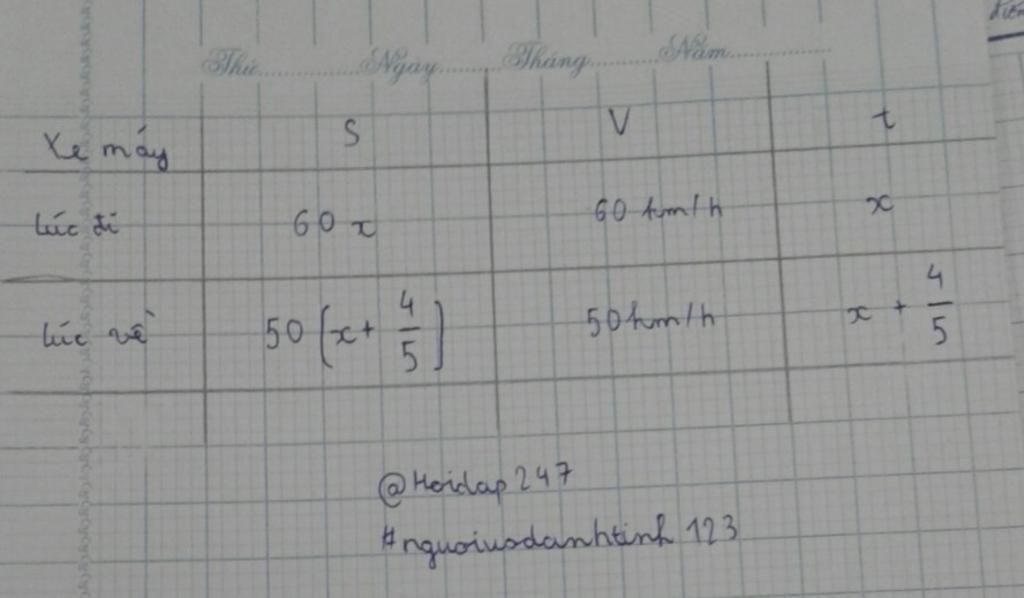 Thứ.............Ngày.........Tháng...........Năm.................
Xe máy S V t
lúc đi 60 x 60 km/h x
lúc về 50 (x + 4/5) 50 km/h x + 4/5
@Hoidap 247
#nguoivodanhtinh 123